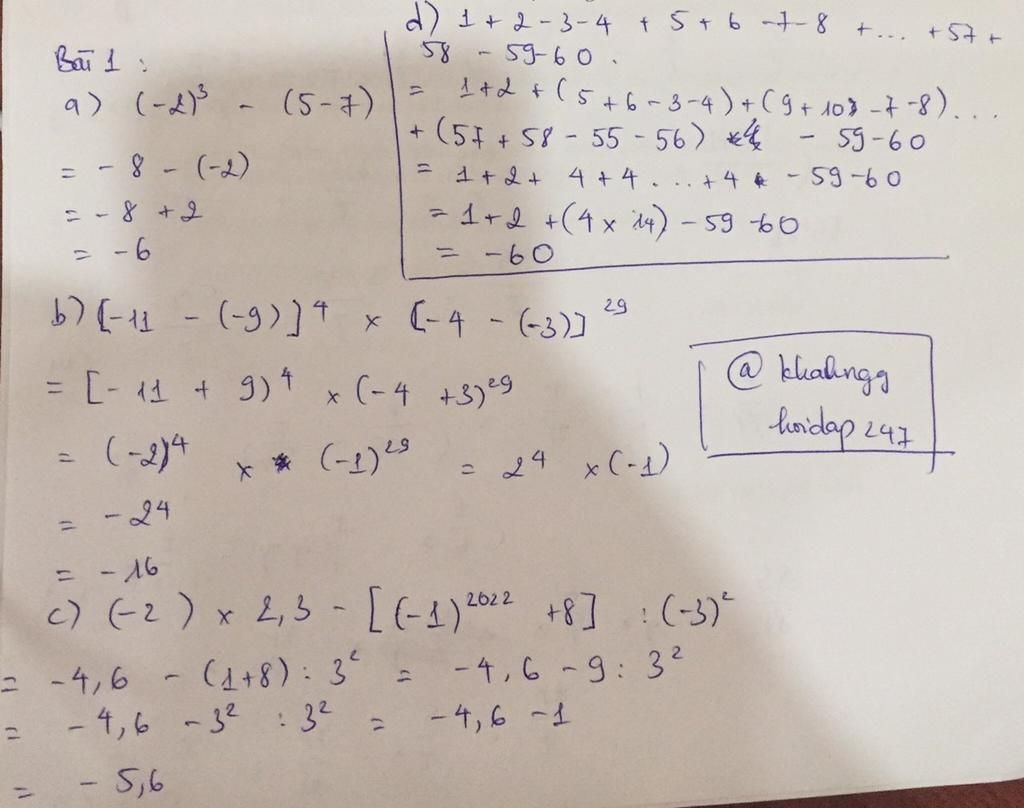 Bài 1 :
a) (-2)³ - (5-7)
= -8 - (-2)
= -8 + 2
= -6
d) 1 + 2 - 3 - 4 + 5 + 6 - 7 - 8 + ... + 57 +
58 - 59 - 60 .
= 1 + 2 + (5 + 6 - 3 - 4) + (9 + 10 - 7 - 8) ...
+ (57 + 58 - 55 - 56) - 59 - 60
= 1 + 2 + 4 + 4 ... + 4 - 59 - 60
= 1 + 2 + (4 x 14) - 59 - 60
= -60
b) [-11 - (-9)]⁴ x [-4 - (-3)]²⁹
= [-11 + 9)⁴ x (-4 + 3)²⁹
= (-2)⁴ x (-1)²⁹ = 2⁴ x (-1)
= -2⁴
= -16
@ khalingg
hoidap 247
c) (-2) x 2,3 - [(-1)²⁰²² + 8] : (-3)²
= -4,6 - (1+8) : 3² = -4,6 - 9 : 3²
= -4,6 - 3² : 3² = -4,6 - 1
= -5,6